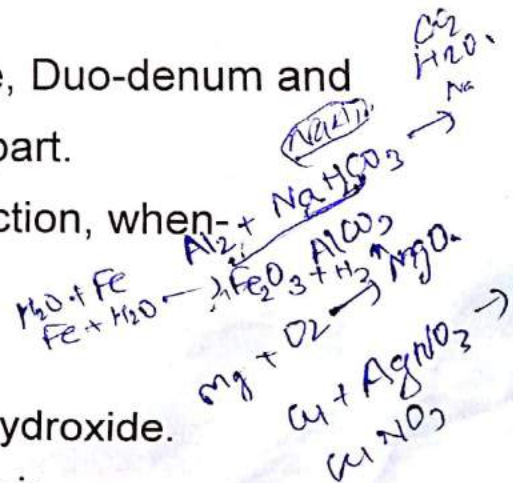 e, Duo-denum and
part.
ction, when-
ydroxide.
CO2
H2O.
Na
Al2 + NaHCO3 →
AlCO3
H2O + Fe
Fe + H2O
Fe2O3 + H2
Mg + O2 → MgO.
Cu + AgNO3 →
Cu NO3